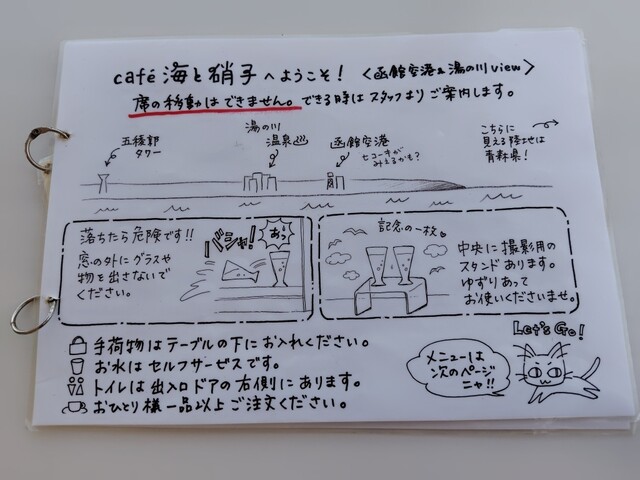 café 海と硝子へようこそ！〈函館空港&湯の川view〉
席の移動はできません。できる時はスタッフよりご案内します。
五稜郭
タワー
湯の川
温泉♨
函館空港
ヒコーキが
みえるかも？
こちらに
見える陸地は
青森県！
落ちたら危険です!!
窓の外にグラスや
物を出さないで
ください。
バシャ！
あっ
記念の一枚
中央に撮影用の
スタンドあります。
ゆずりあって
お使いくださいませ。
手荷物はテーブルの下にお入れください。
お水はセルフサービスです。
トイレは出入口ドアの右側にあります。
おひとり様一品以上ご注文ください。
Let's Go!
メニューは
次のページ
ニャ!!